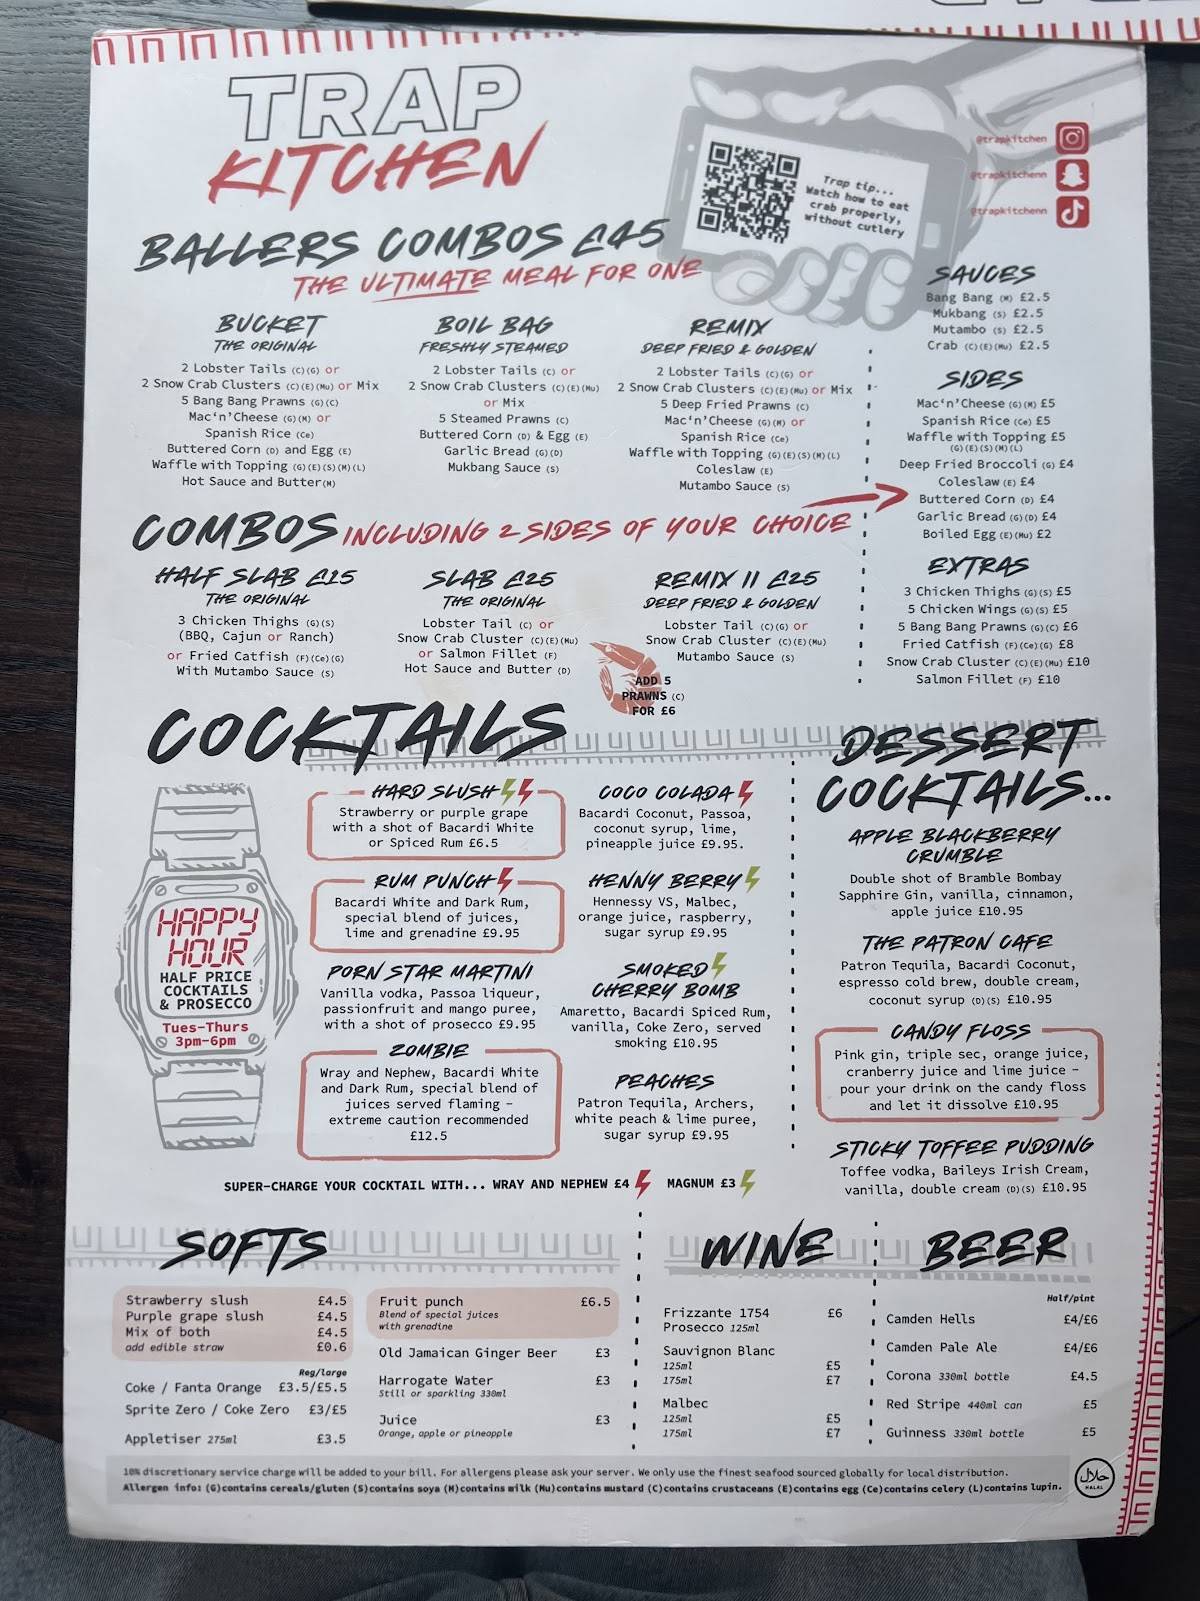 TRAP
KITCHEN
Trap tip...
Watch how to eat
crab properly,
without cutlery
@trapkitchen
@trapkitchenn
@trapkitchenn
BALLERS COMBOS £45
THE ULTIMATE MEAL FOR ONE
BUCKET
THE ORIGINAL
2 Lobster Tails (C)(G) or
2 Snow Crab Clusters (C)(E)(Mu) or Mix
5 Bang Bang Prawns (G)(C)
Mac'n'Cheese (G)(M) or
Spanish Rice (Ce)
Buttered Corn (D) and Egg (E)
Waffle with Topping (G)(E)(S)(M)(L)
Hot Sauce and Butter(M)
BOIL BAG
FRESHLY STEAMED
2 Lobster Tails (C) or
2 Snow Crab Clusters (C)(E)(Mu)
or Mix
5 Steamed Prawns (C)
Buttered Corn (D) & Egg (E)
Garlic Bread (G)(D)
Mukbang Sauce (S)
REMIX
DEEP FRIED & GOLDEN
2 Lobster Tails (C)(G) or
2 Snow Crab Clusters (C)(E)(Mu) or Mix
5 Deep Fried Prawns (C)
Mac'n'Cheese (G)(M) or
Spanish Rice (Ce)
Waffle with Topping (G)(E)(S)(M)(L)
Coleslaw (E)
Mutambo Sauce (S)
SAUCES
Bang Bang (M) £2.5
Mukbang (S) £2.5
Mutambo (S) £2.5
Crab (C)(E)(Mu) £2.5
SIDES
Mac'n'Cheese (G)(M) £5
Spanish Rice (Ce) £5
Waffle with Topping £5
(G)(E)(S)(M)(L)
Deep Fried Broccoli (G) £4
Coleslaw (E) £4
Buttered Corn (D) £4
Garlic Bread (G)(D) £4
Boiled Egg (E)(Mu) £2
EXTRAS
3 Chicken Thighs (G)(S) £5
5 Chicken Wings (G)(S) £5
5 Bang Bang Prawns (G)(C) £6
Fried Catfish (F)(Ce)(G) £8
Snow Crab Cluster (C)(E)(Mu) £10
Salmon Fillet (F) £10
COMBOS INCLUDING 2 SIDES OF YOUR CHOICE
HALF SLAB £15
THE ORIGINAL
3 Chicken Thighs (G)(S)
(BBQ, Cajun or Ranch)
or Fried Catfish (F)(Ce)(G)
With Mutambo Sauce (S)
SLAB £25
THE ORIGINAL
Lobster Tail (C) or
Snow Crab Cluster (C)(E)(Mu)
or Salmon Fillet (F)
Hot Sauce and Butter (D)
REMIX II £25
DEEP FRIED & GOLDEN
Lobster Tail (C)(G) or
Snow Crab Cluster (C)(E)(Mu)
Mutambo Sauce (S)
ADD 5
PRAWNS (C)
FOR £6
COCKTAILS
HAPPY
HOUR
HALF PRICE
COCKTAILS
& PROSECCO
Tues-Thurs
3pm-6pm
HARD SLUSH
Strawberry or purple grape
with a shot of Bacardi White
or Spiced Rum £6.5
RUM PUNCH
Bacardi White and Dark Rum,
special blend of juices,
lime and grenadine £9.95
PORN STAR MARTINI
Vanilla vodka, Passoa liqueur,
passionfruit and mango puree,
with a shot of prosecco £9.95
ZOMBIE
Wray and Nephew, Bacardi White
and Dark Rum, special blend of
juices served flaming -
extreme caution recommended
£12.5
COCO COLADA
Bacardi Coconut, Passoa,
coconut syrup, lime,
pineapple juice £9.95.
HENNY BERRY
Hennessy VS, Malbec,
orange juice, raspberry,
sugar syrup £9.95
SMOKED
CHERRY BOMB
Amaretto, Bacardi Spiced Rum,
vanilla, Coke Zero, served
smoking £10.95
PEACHES
Patron Tequila, Archers,
white peach & lime puree,
sugar syrup £9.95
SUPER-CHARGE YOUR COCKTAIL WITH... WRAY AND NEPHEW £4 MAGNUM £3
DESSERT
COCKTAILS...
APPLE BLACKBERRY
CRUMBLE
Double shot of Bramble Bombay
Sapphire Gin, vanilla, cinnamon,
apple juice £10.95
THE PATRON CAFE
Patron Tequila, Bacardi Coconut,
espresso cold brew, double cream,
coconut syrup (D)(S) £10.95
CANDY FLOSS
Pink gin, triple sec, orange juice,
cranberry juice and lime juice -
pour your drink on the candy floss
and let it dissolve £10.95
STICKY TOFFEE PUDDING
Toffee vodka, Baileys Irish Cream,
vanilla, double cream (D)(S) £10.95
SOFTS
Strawberry slush £4.5
Purple grape slush £4.5
Mix of both £4.5
add edible straw £0.6
Reg/large
Coke / Fanta Orange £3.5/£5.5
Sprite Zero / Coke Zero £3/£5
Appletiser 275ml £3.5
Fruit punch £6.5
Blend of special juices
with grenadine
Old Jamaican Ginger Beer £3
Harrogate Water £3
Still or sparkling 330ml
Juice £3
Orange, apple or pineapple
WINE
Frizzante 1754 £6
Prosecco 125ml
Sauvignon Blanc
125ml £5
175ml £7
Malbec
125ml £5
175ml £7
BEER
Half/pint
Camden Hells £4/£6
Camden Pale Ale £4/£6
Corona 330ml bottle £4.5
Red Stripe 440ml can £5
Guinness 330ml bottle £5
10% discretionary service charge will be added to your bill. For allergens please ask your server. We only use the finest seafood sourced globally for local distribution.
Allergen info: (G)contains cereals/gluten (S)contains soya (M)contains milk (Mu)contains mustard (C)contains crustaceans (E)contains egg (Ce)contains celery (L)contains lupin.
حلال
HALAL